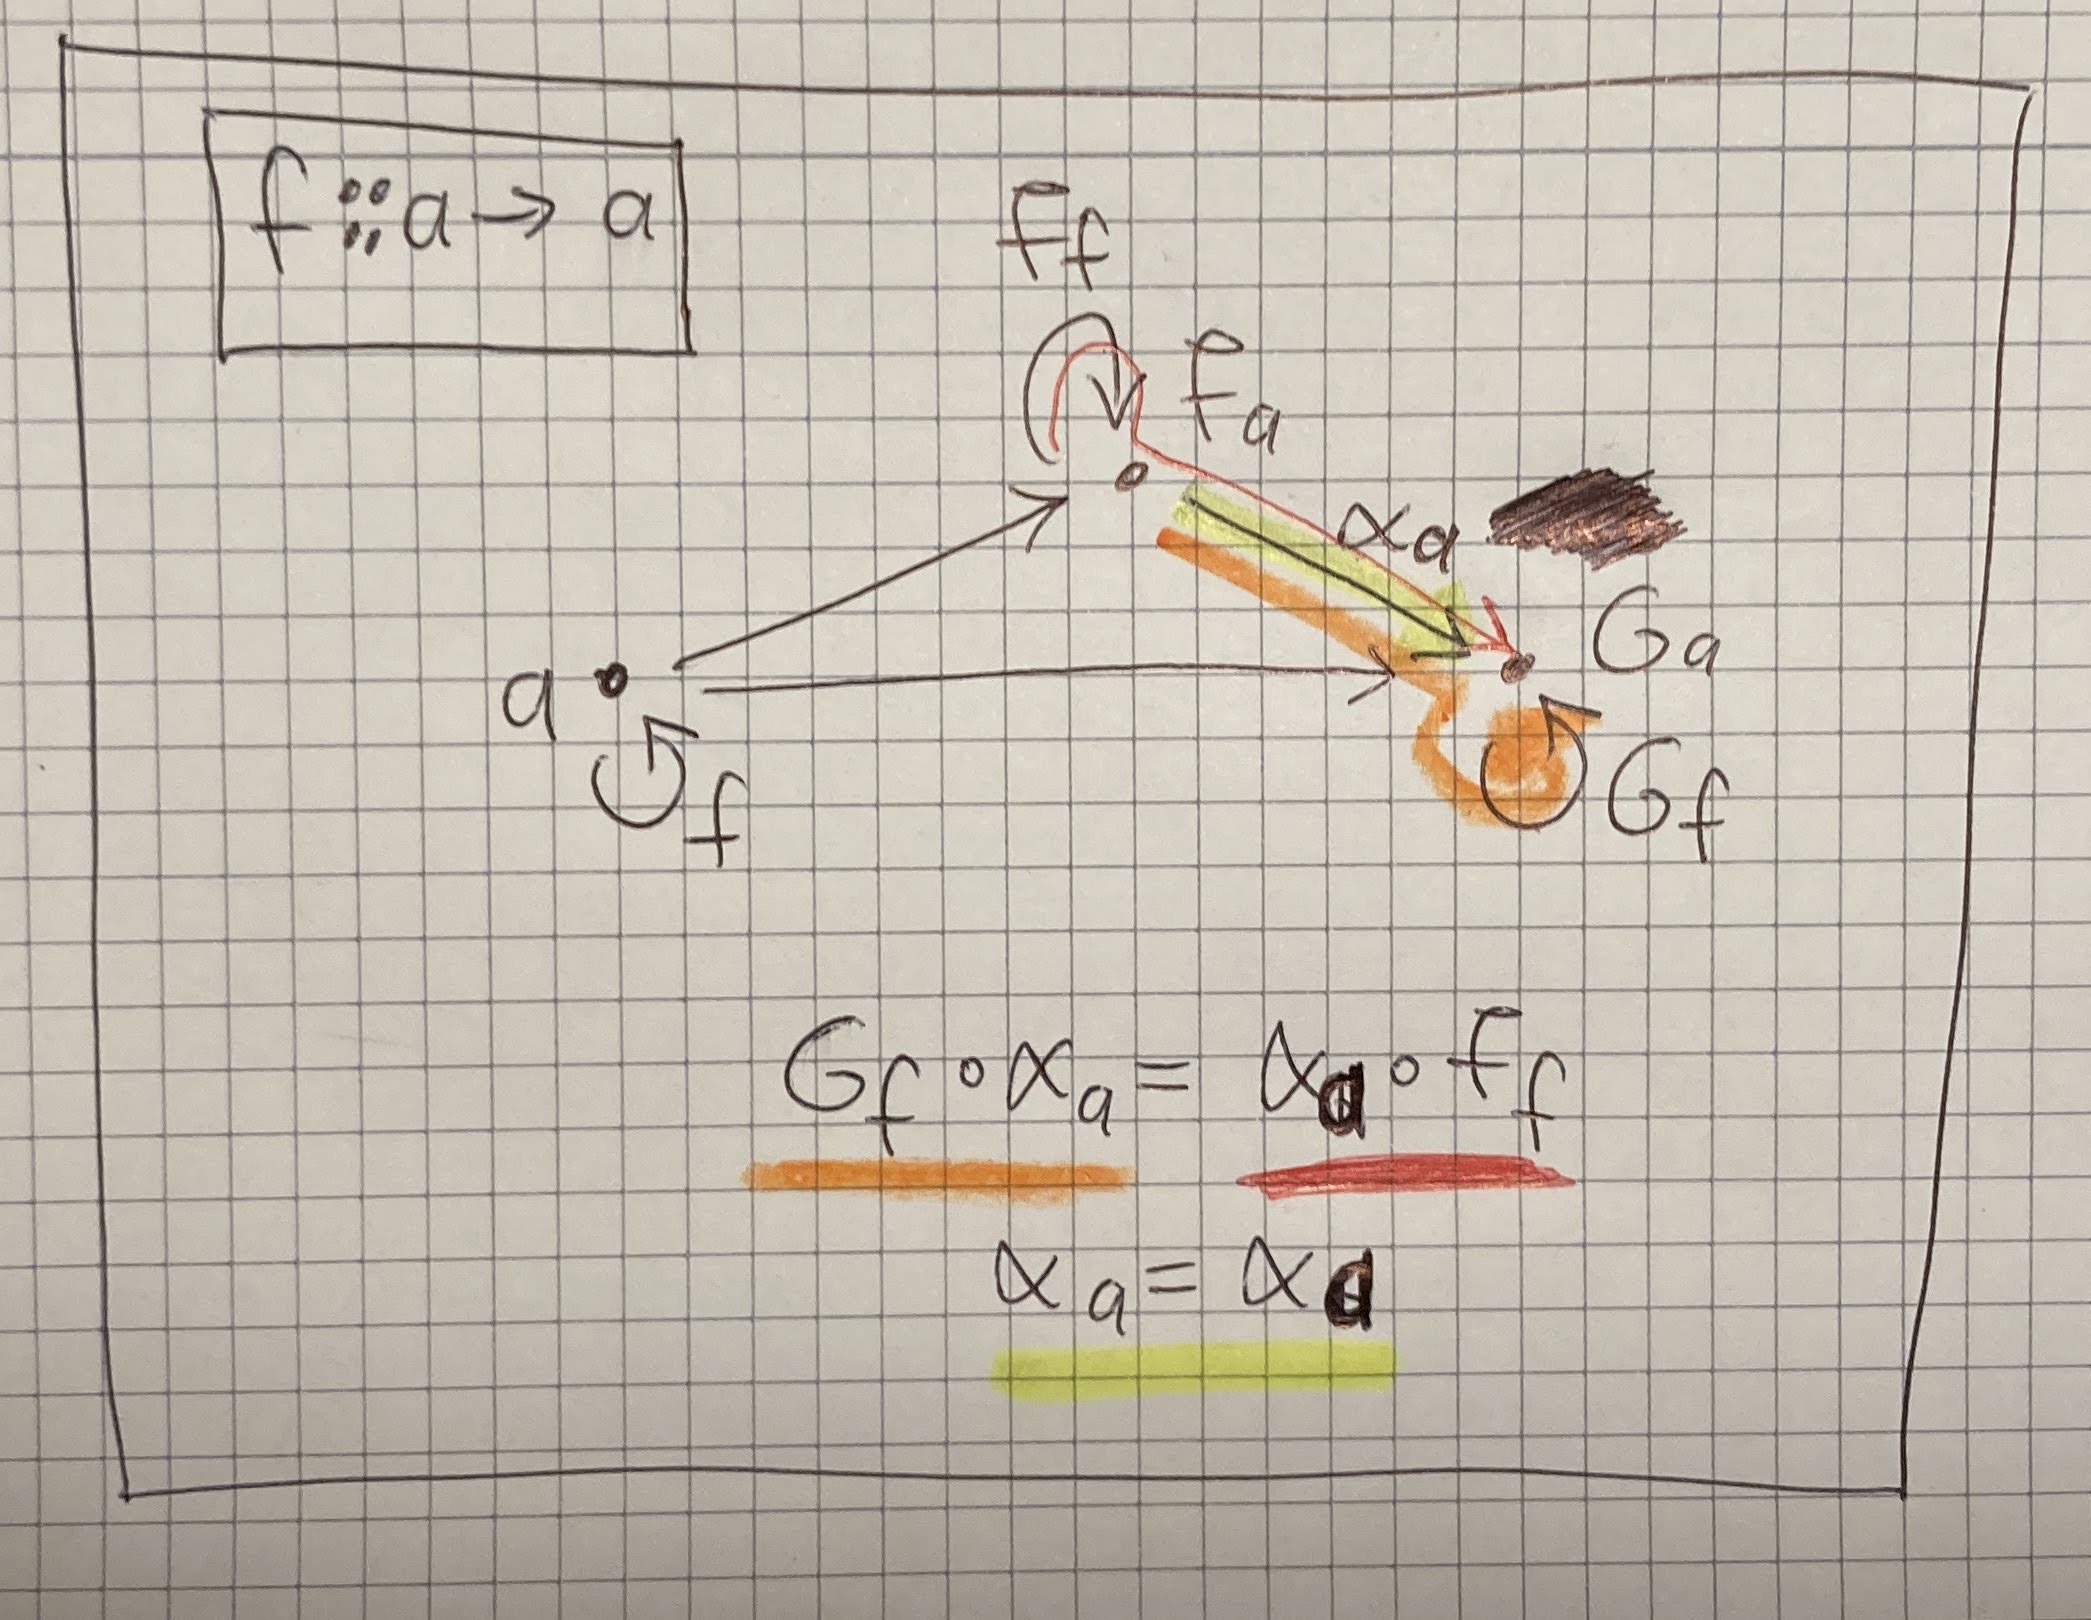 f :: a → a
Ff
Fa
αa
Ga
a
f
Gf
Gf ∘ αa = αa ∘ Ff
αa = αa